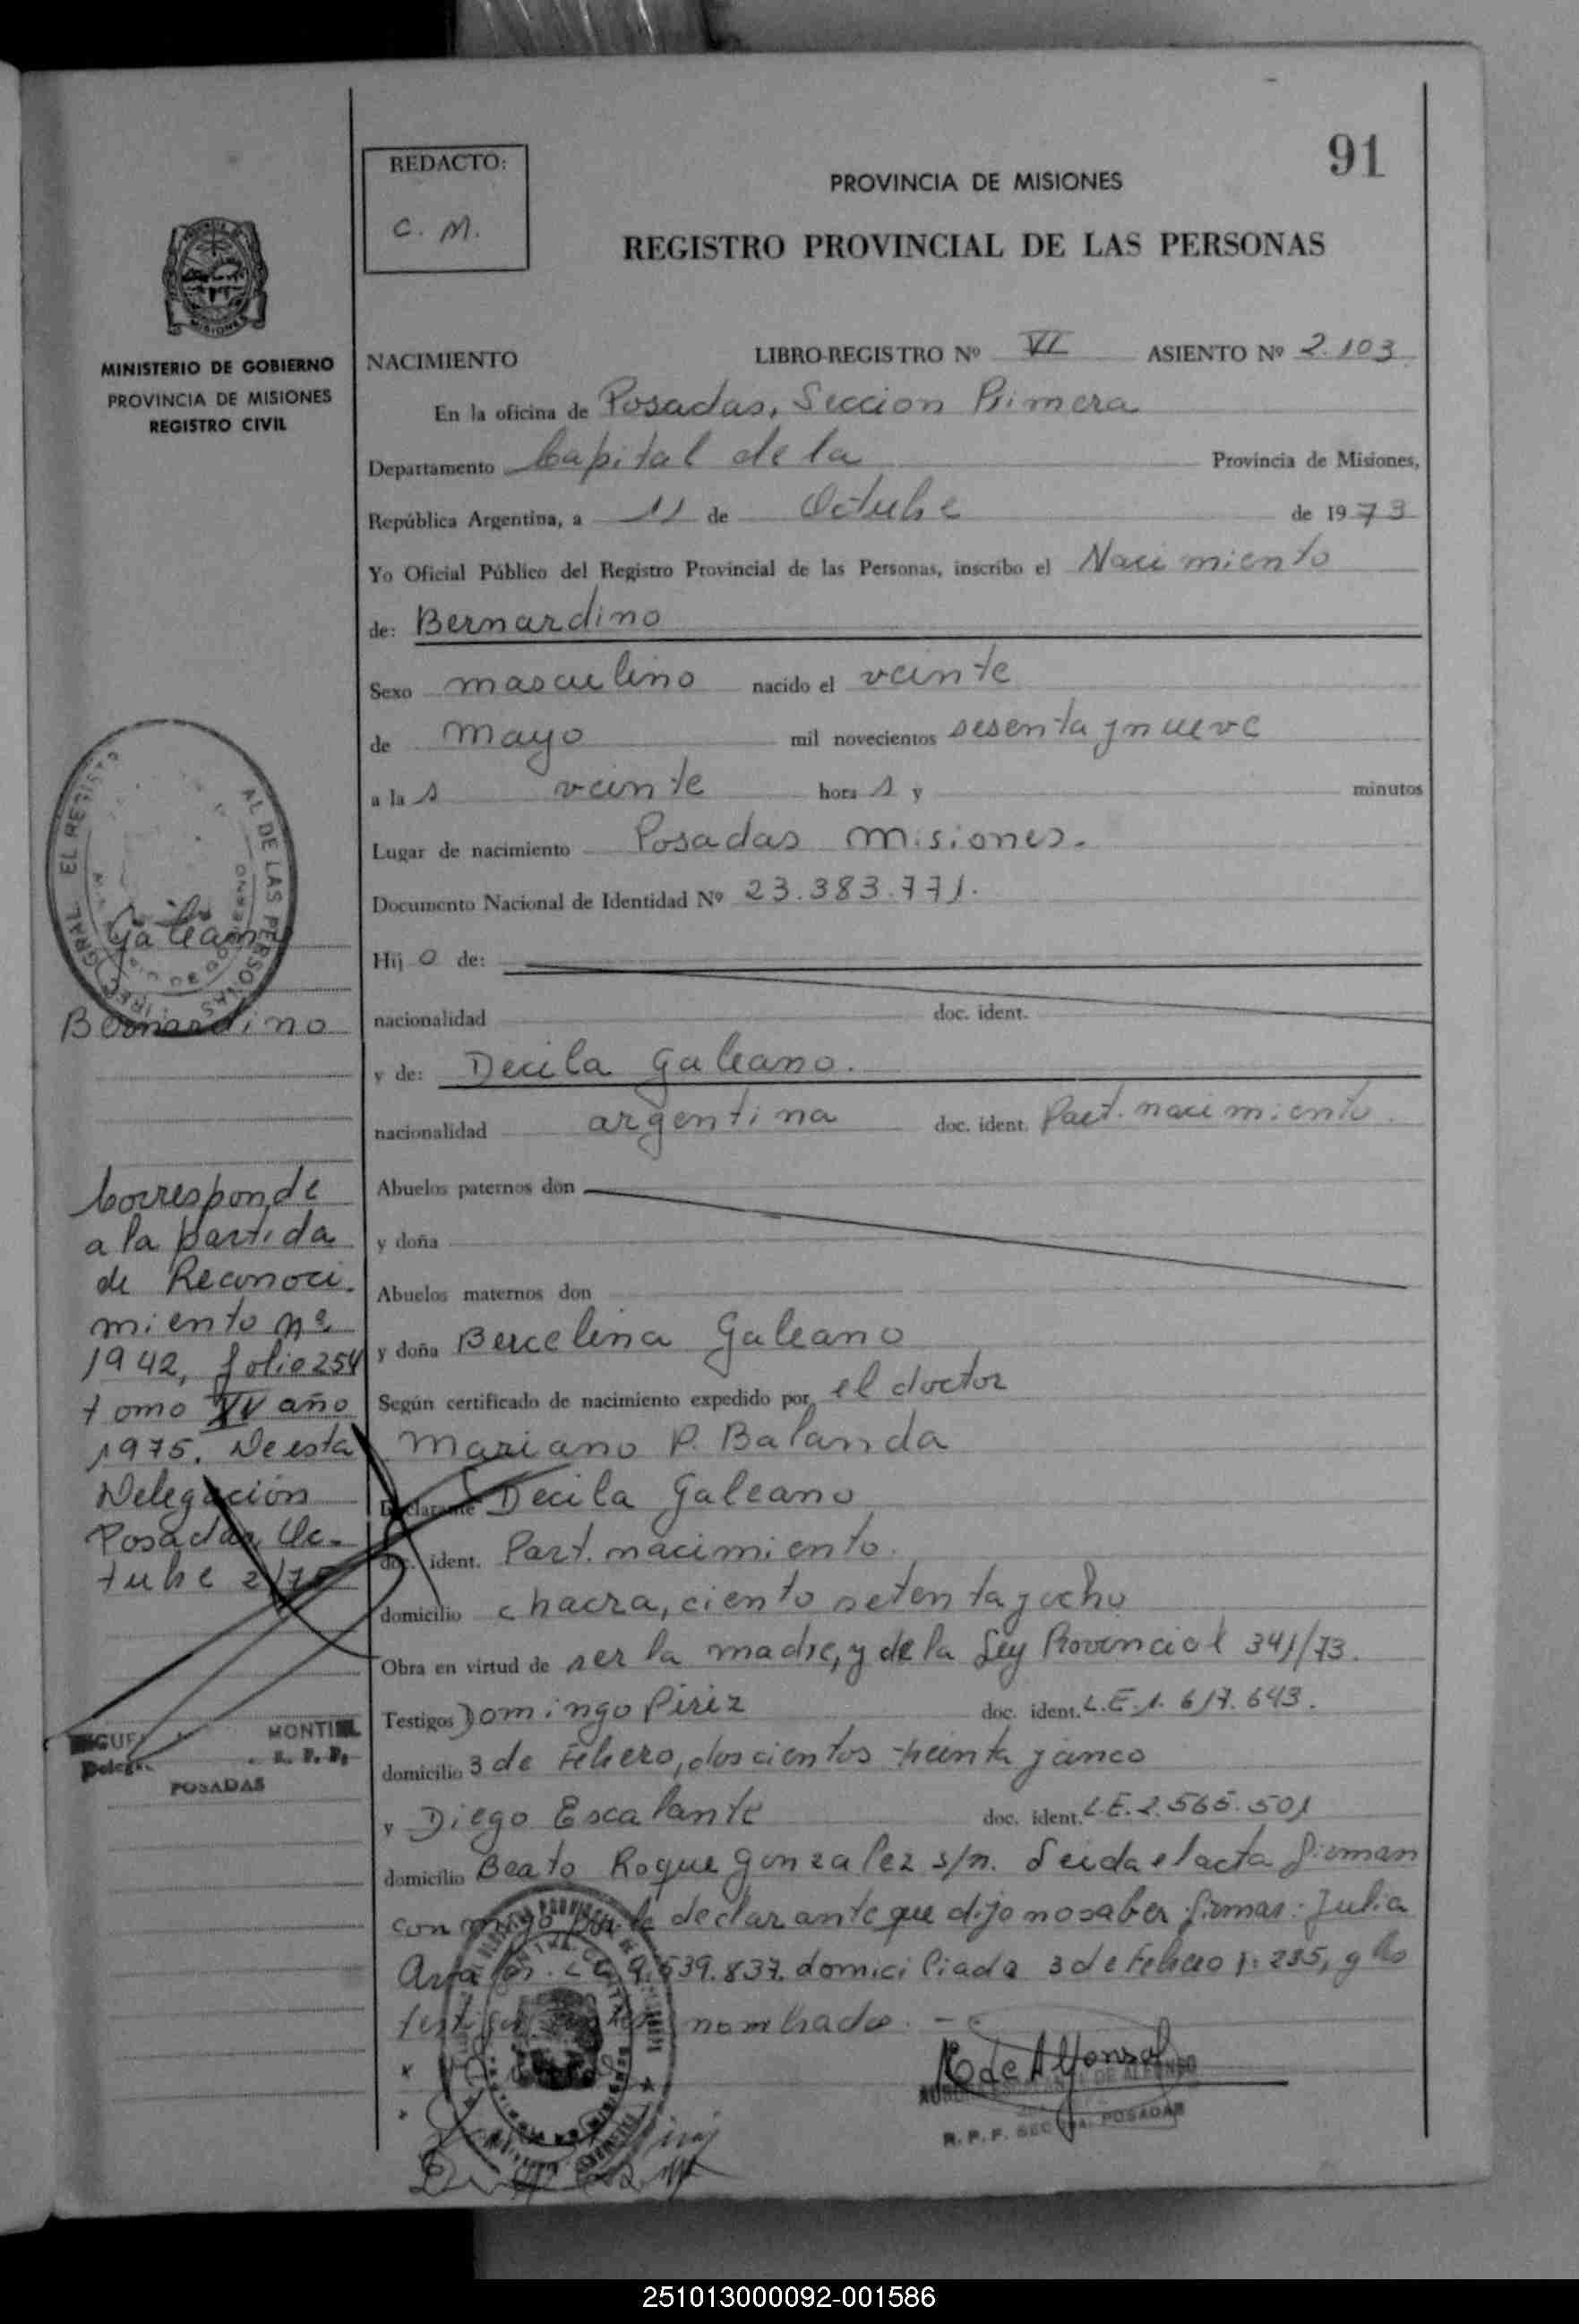 91
REDACTO:
C. M.
PROVINCIA DE MISIONES
REGISTRO PROVINCIAL DE LAS PERSONAS
MINISTERIO DE GOBIERNO
PROVINCIA DE MISIONES
REGISTRO CIVIL
NACIMIENTO LIBRO-REGISTRO Nº VI ASIENTO Nº 2.103
En la oficina de Posadas, Seccion Primera
Departamento Capital de la Provincia de Misiones,
República Argentina, a 11 de Octubre de 1973
Yo Oficial Público del Registro Provincial de las Personas, inscribo el Nacimiento
de: Bernardino
Sexo masculino nacido el veinte
de mayo mil novecientos sesenta y nueve
a las veinte horas y minutos
Lugar de nacimiento Posadas Misiones.
Documento Nacional de Identidad Nº 23.383.771.
Hijo de:
nacionalidad doc. ident.
y de: Decila Galeano.
nacionalidad argentina doc. ident. Part. nacimiento.
Abuelos paternos don
y doña
Abuelos maternos don
y doña Bercelina Galeano
Según certificado de nacimiento expedido por el doctor
Mariano P. Balanda
Declarante Decila Galeano
doc. ident. Part. nacimiento.
domicilio chacra, ciento setenta y ocho
Obra en virtud de ser la madre, y de la Ley Provincial 341/73.
Testigos Domingo Piriz doc. ident. L.E.1.617.643.
domicilio 3 de Febrero, doscientos treinta y cinco
y Diego Escalante doc. ident. L.E.2.565.501
domicilio Beato Roque Gonzalez s/n. Leida el acta firman
conmigo por la declarante que dijo no saber firmar: Julia
9.539.837. domiciliada 3 de Febrero 1.235, y los
testigos nombrados. -
R de Alfonso
DE ALFONSO
R. P. P. SEC. 1ra. POSADAS
Galeano
Bernardino
Corresponde
a la partida
de Reconoci-
miento nº
1942, folio 254
tomo XV año
1975. De esta
Delegación
Posadas, Oc-
tubre 2/75
MONTIEL
R. P. P.
POSADAS
251013000092-001586